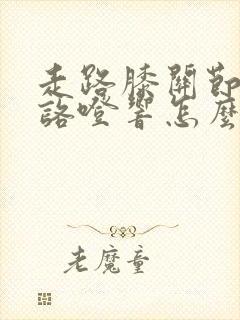 走路膝關節
詻噔響怎麼
老魔童